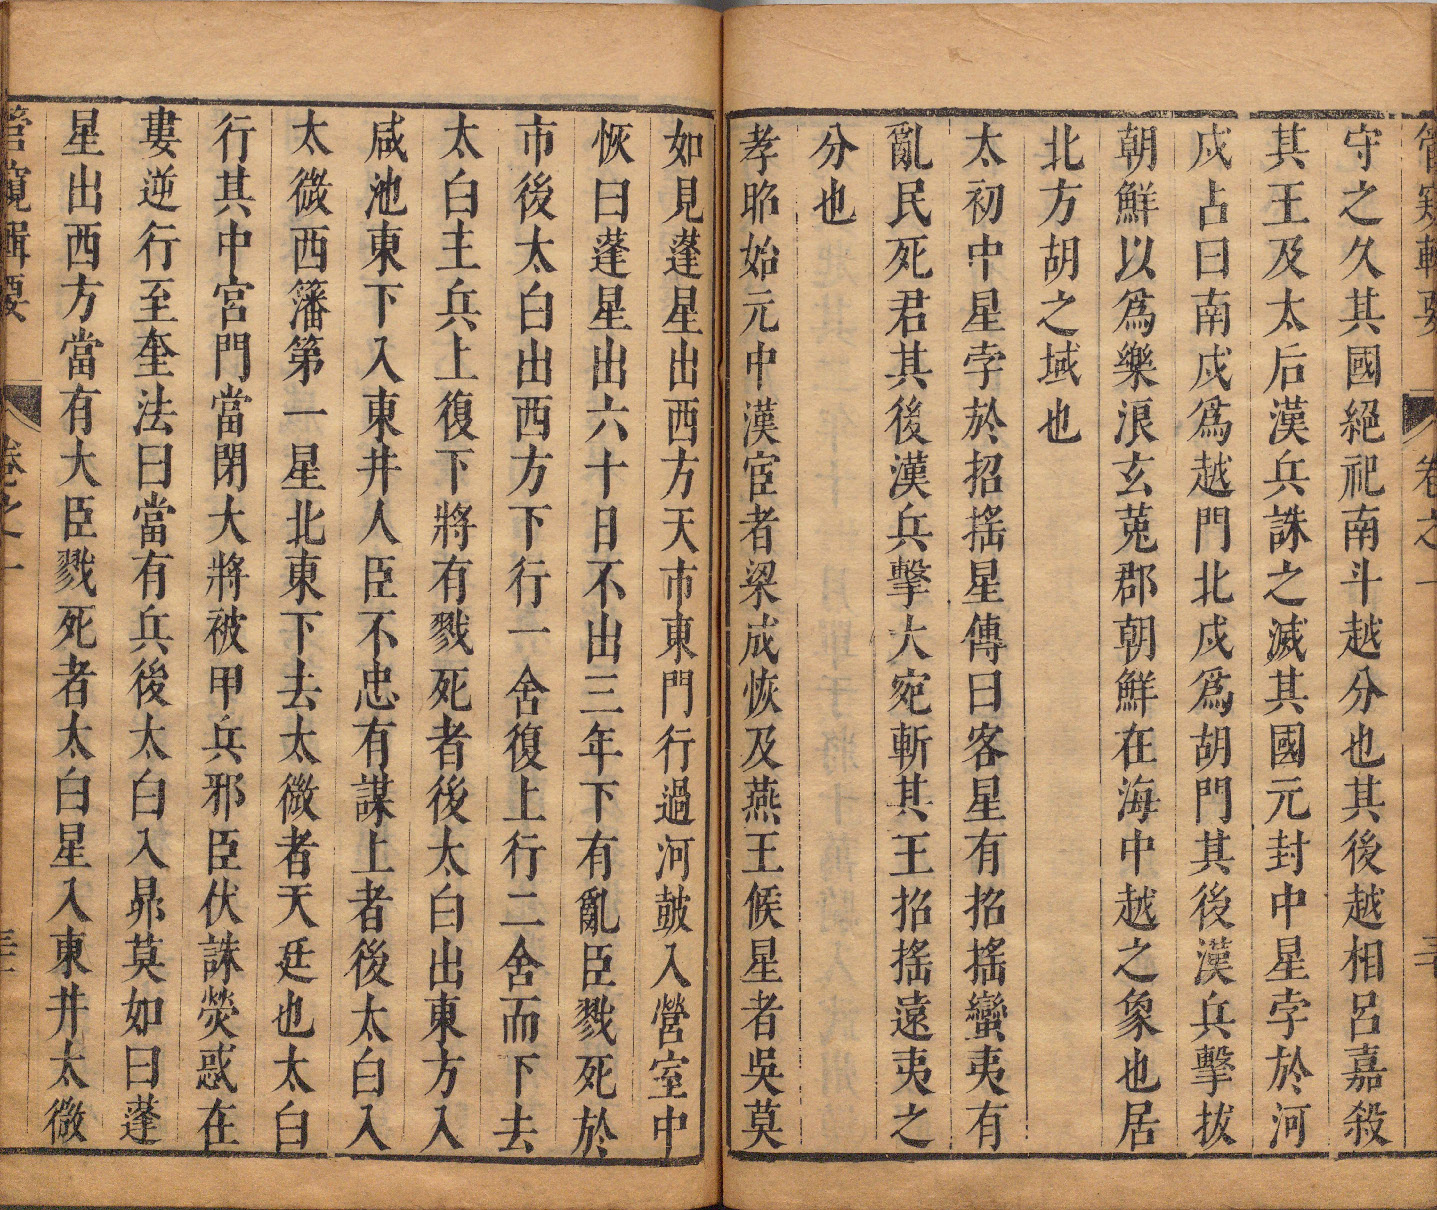 管窺輯要 卷之十
守之久其國絕祀南斗越分也其後越相呂嘉殺
其王及太后漢兵誅之滅其國元封中星孛於河
戍占曰南戍爲越門北戍爲胡門其後漢兵擊拔
朝鮮以爲樂浪玄菟郡朝鮮在海中越之象也居
北方胡之域也
太初中星孛於招搖星傳曰客星有招搖蠻夷有
亂民死君其後漢兵擊大宛斬其王招搖遠夷之
分也
孝昭始元中漢宦者梁成恢及燕王候星者吳莫
如見蓬星出西方天市東門行過河鼓入營室中
恢曰蓬星出六十日不出三年下有亂臣戮死於
市後太白出西方下行一舍復上行二舍而下去
太白主兵上復下將有戮死者後太白出東方入
咸池東下入東井人臣不忠有謀上者後太白入
太微西籓第一星北東下去太微者天廷也太白
行其中宮門當閉大將被甲兵邪臣伏誅熒惑在
婁逆行至奎法曰當有兵後太白入昴莫如曰蓬
星出西方當有大臣戮死者太白星入東井太微
管窺輯要 卷之十